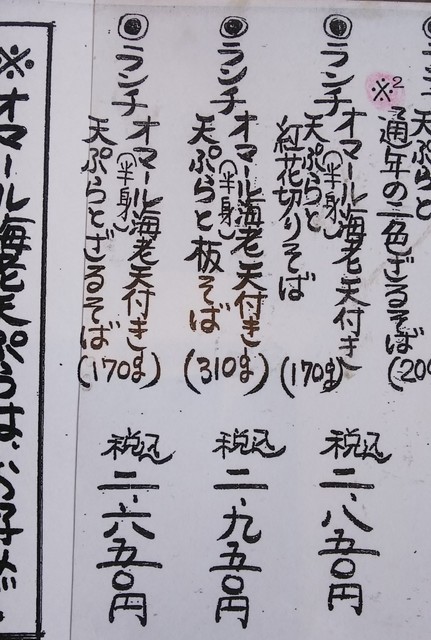 天ぷらと
※2
通年の二色ざるそば
(200
◉ランチ
オマール海老天付き
(半身)
天ぷらと
紅花切りそば
(170g)
税込
二、八五〇円
◉ランチ
オマール海老天付き
(半身)
天ぷらと板そば
(310g)
税込
二、九五〇円
◉ランチ
オマール海老天付き
(半身)
天ぷらとざるそば
(170g)
税込
二、六五〇円
※オマール海老天ぷらは、お好みで